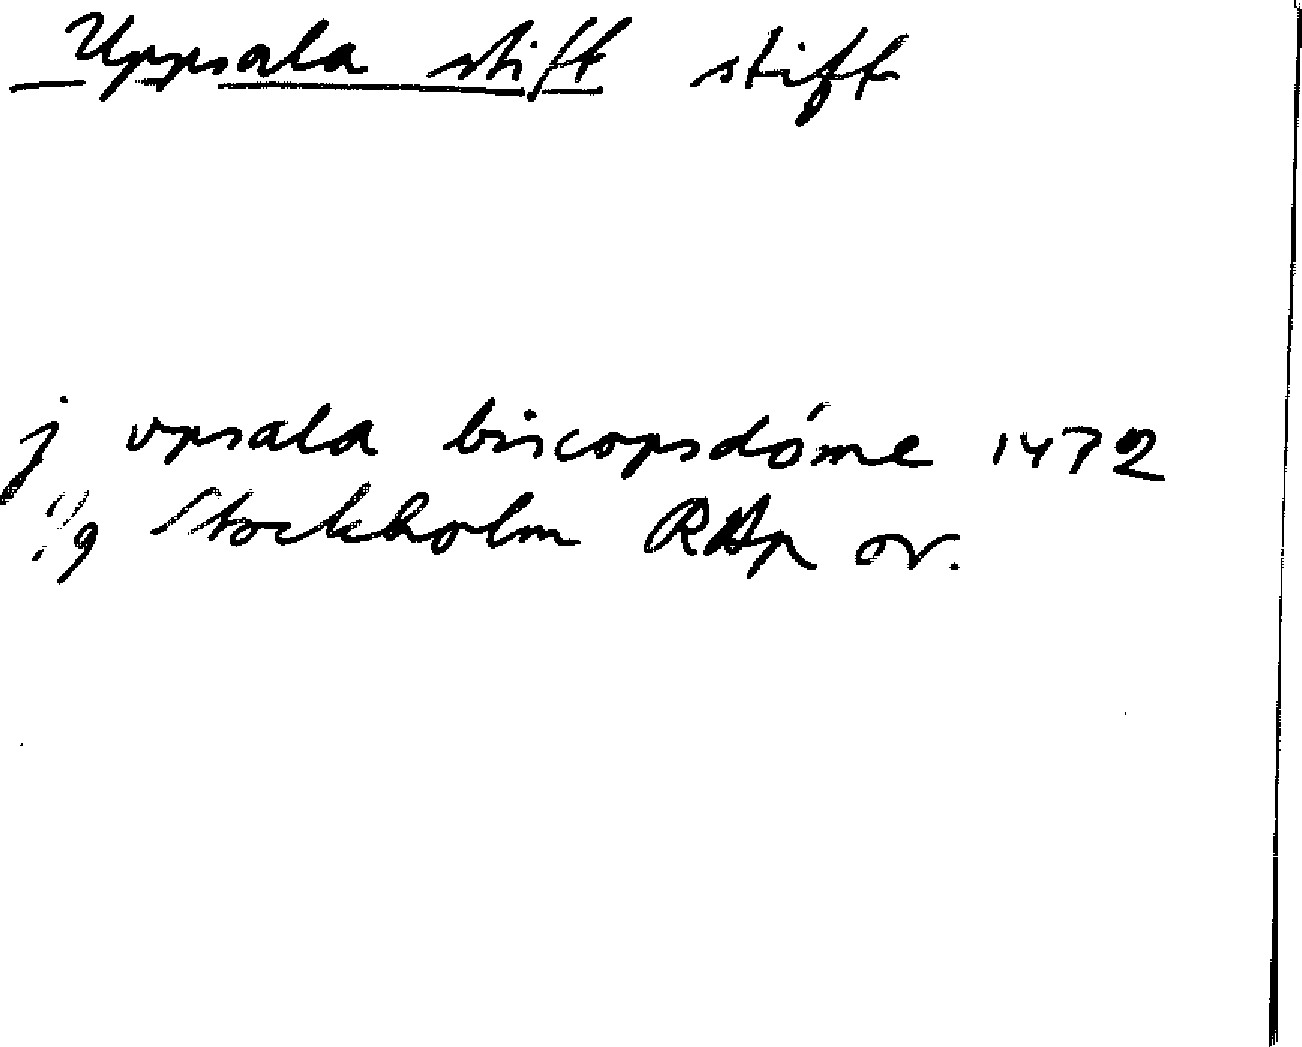 Uppsala stift stift
j vpsala biscopsdóme 1472
/9 Stockholm RAp or.